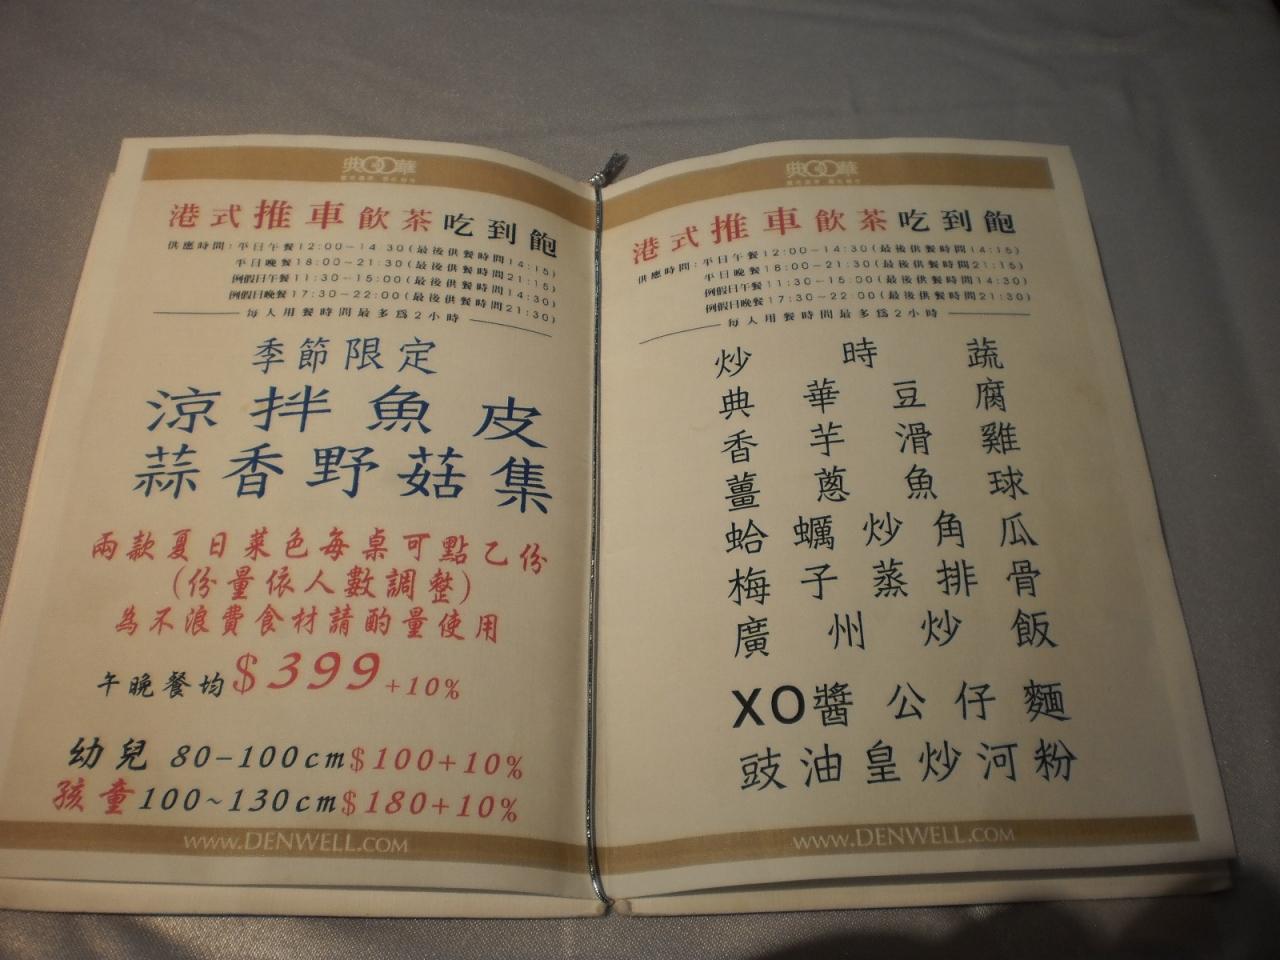 典華
港式推車飲茶吃到飽
供應時間：平日午餐12:00~14:30(最後供餐時間14:15)
平日晚餐18:00~21:30(最後供餐時間21:15)
例假日午餐11:30~15:00(最後供餐時間14:30)
例假日晚餐17:30~22:00(最後供餐時間21:30)
每人用餐時間最多為2小時
季節限定
涼拌魚皮
蒜香野菇集
兩款夏日菜色每桌可點乙份
(份量依人數調整)
為不浪費食材請酌量使用
午晚餐均$399+10%
幼兒 80-100cm$100+10%
孩童100~130cm$180+10%
WWW.DENWELL.COM
典華
港式推車飲茶吃到飽
供應時間：平日午餐12:00~14:30(最後供餐時間14:15)
平日晚餐18:00~21:30(最後供餐時間21:15)
例假日午餐11:30~15:00(最後供餐時間14:30)
例假日晚餐17:30~22:00(最後供餐時間21:30)
每人用餐時間最多為2小時
炒時蔬
典華豆腐
香芋滑雞
薑蔥魚球
蛤蠣炒角瓜
梅子蒸排骨
廣州炒飯
XO醬公仔麵
豉油皇炒河粉
WWW.DENWELL.COM